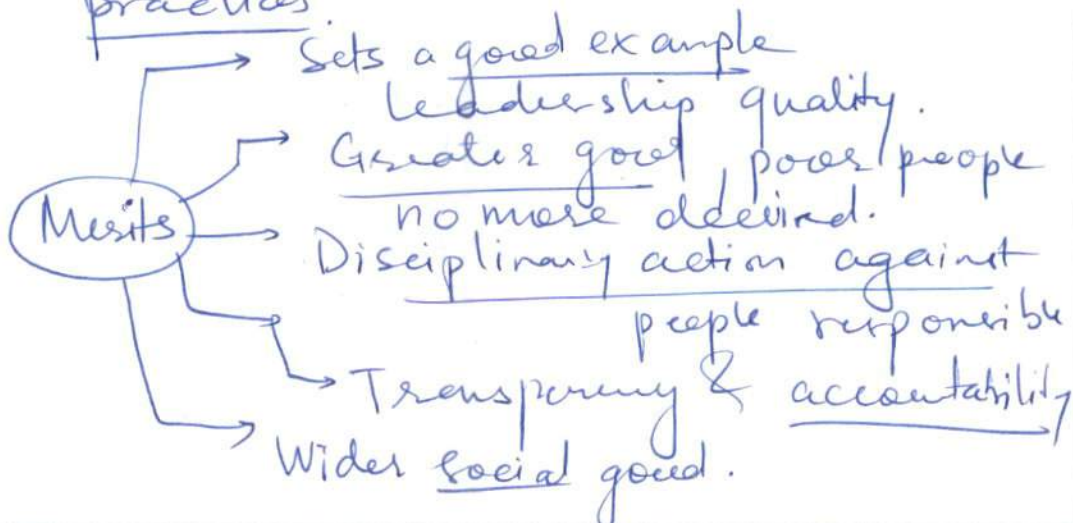 practices
Sets a good example
leadership quality.
Greater good, poor people
no more
Disciplinary action against
people responsible
Merits
Transparency & accountability
Wider social good.